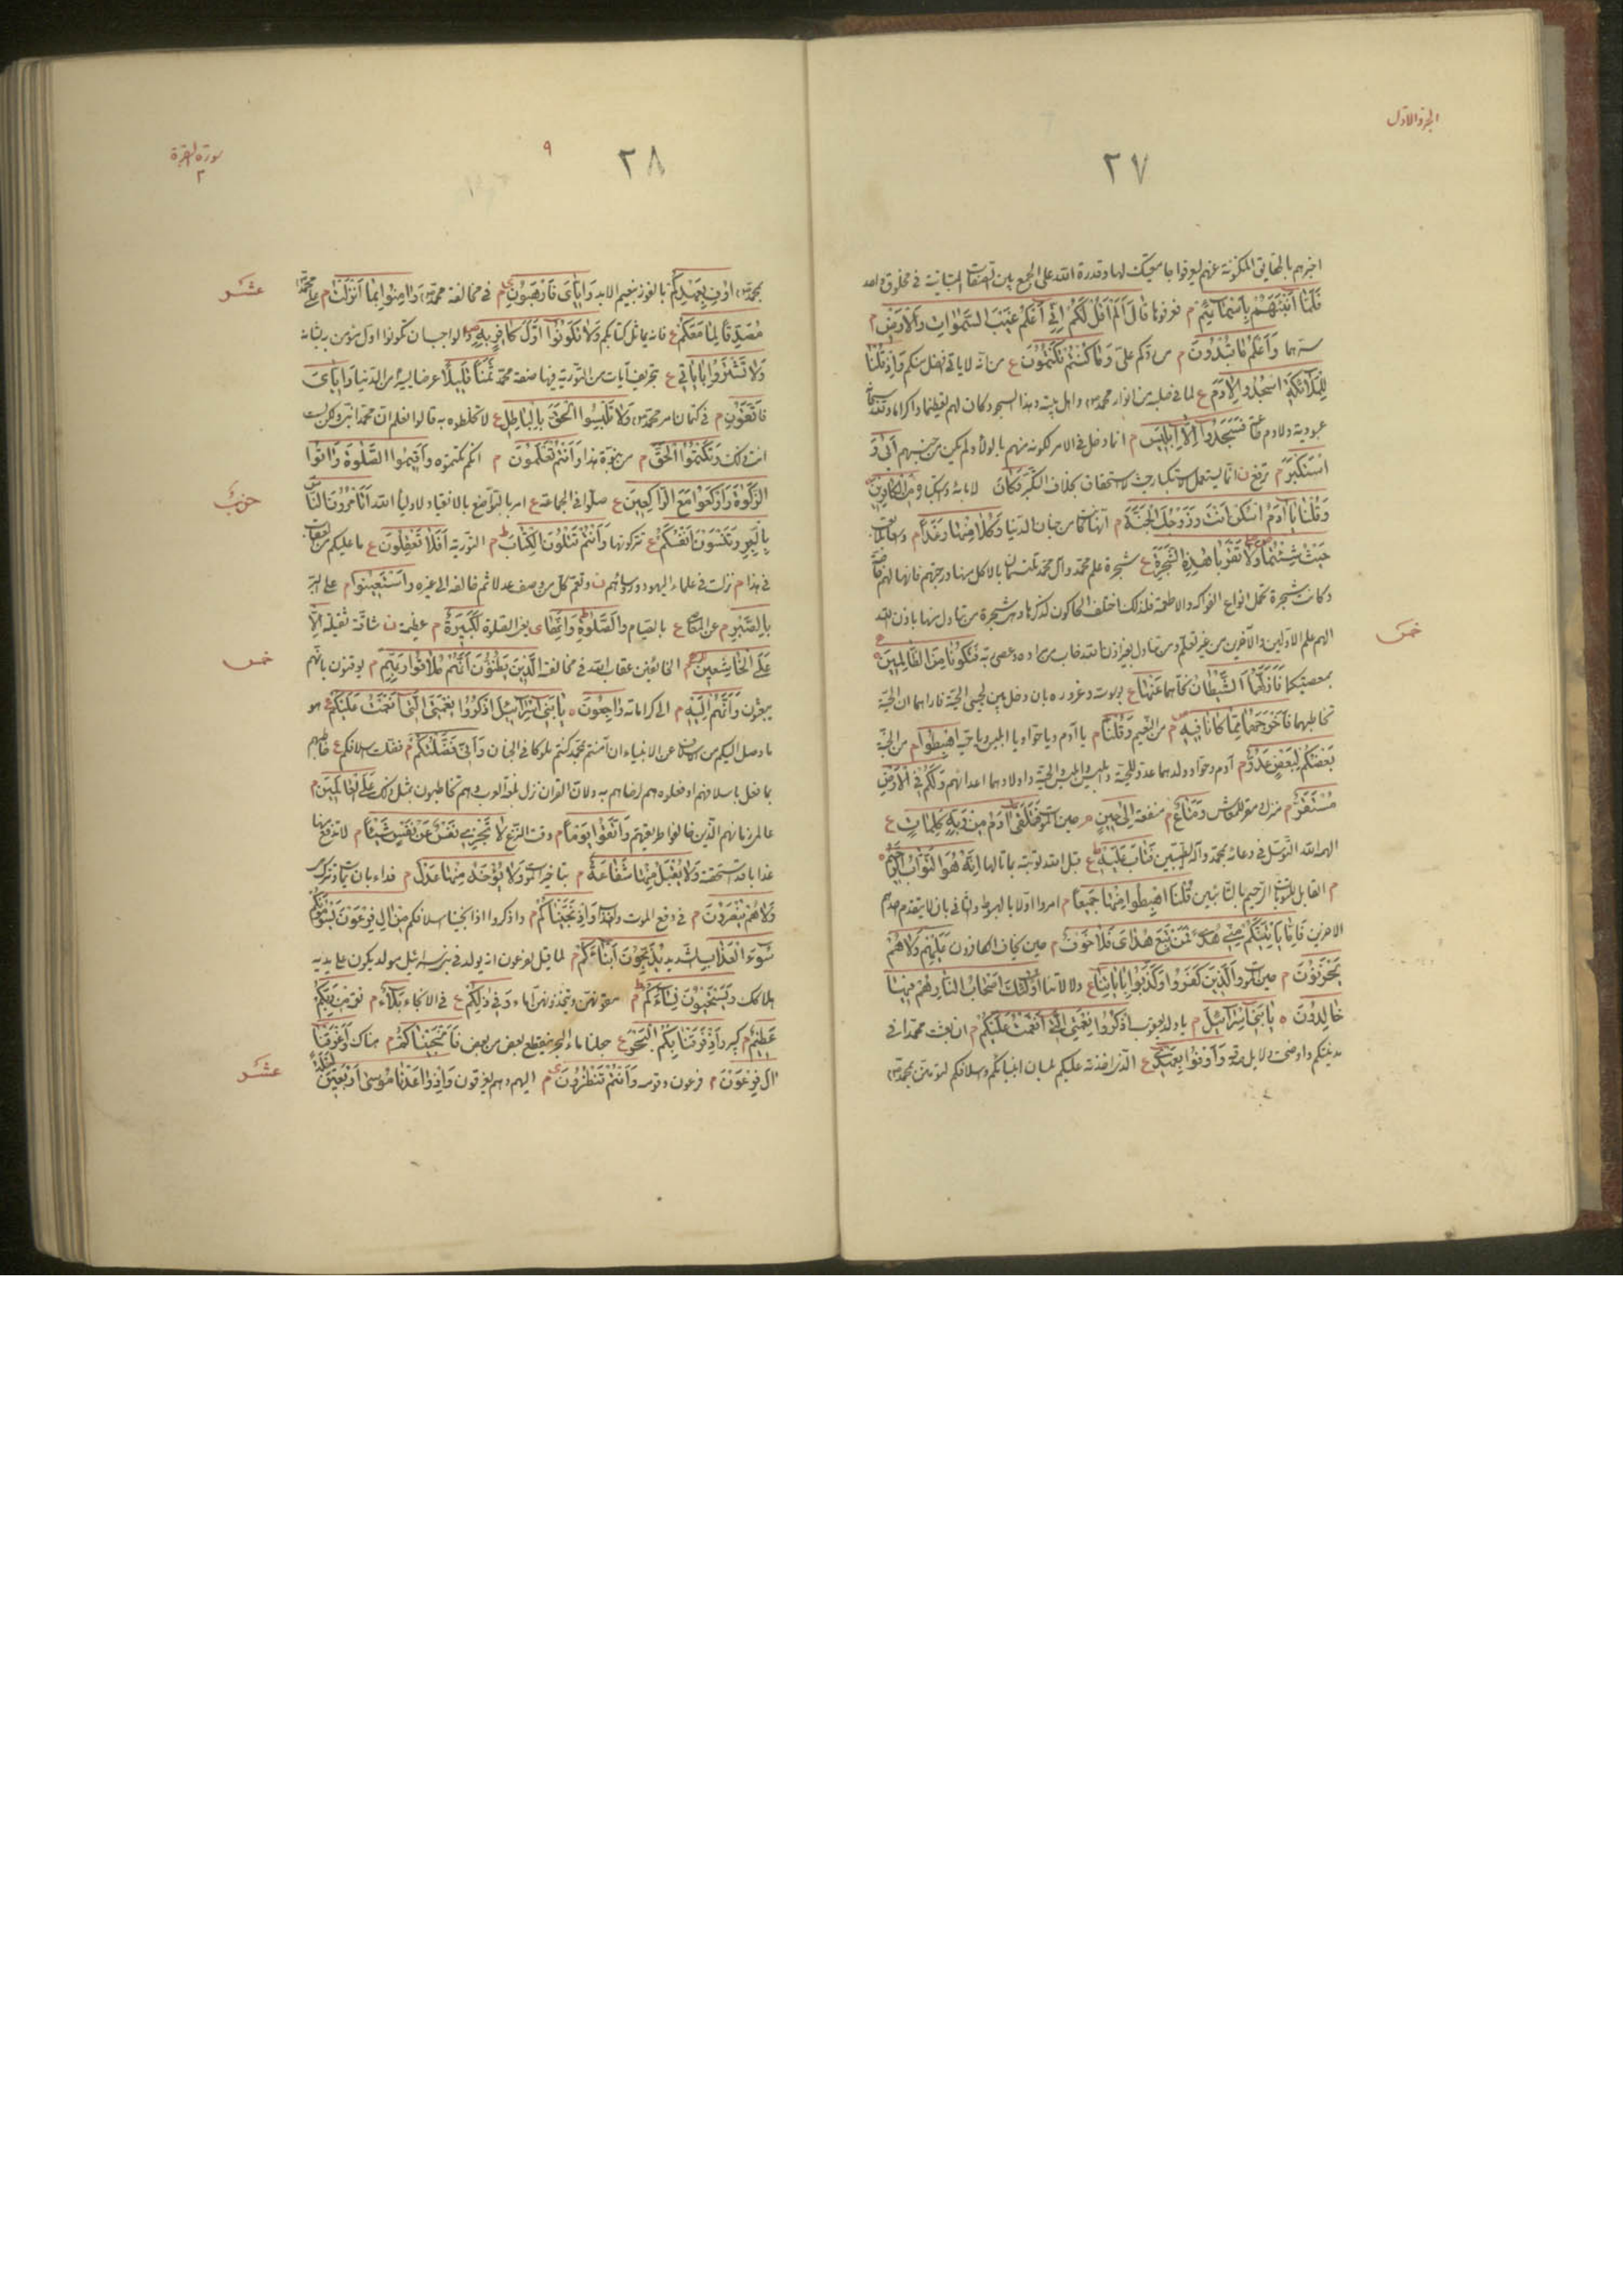 الجزء الاول
٢٧
اخبرهم بالحقايق المكنونة عنهم ليعرفوا جامعيتك لها وقدرة الله على الجمع بين الصفات المتباينة في مخلوق واحد
فَلَمَّا أَنْبَئَهُمْ بِأَسْمَائِهِمْ م فعرفوها قَالَ أَلَمْ أَقُلْ لَكُمْ إِنِّي أَعْلَمُ غَيْبَ السَّمٰوَاتِ وَالْأَرْضِ م
سرهما وَأَعْلَمُ مَا تُبْدُونَ م من ردكم علي وَمَا كُنْتُمْ تَكْتُمُونَ ع من انه لا ياتي افضل منكم وَإِذْ قُلْنَا
لِلْمَلٰائِكَةِ اسْجُدُوا لِآدَمَ ع لما في صلبه من انوار محمد ص واهل بيته وهذا السجود كان لهم تعظيما واكراما ولله سبحانه
عبودية ولادم طاعة فَسَجَدُوا إِلّٰا إِبْلِيسَ م انما دخل في الامر لكونه منهم بالولاء ولم يكن من جنسهم أَبَىٰ وَ
اسْتَكْبَرَ م ترفع ن انما يستعمل الاستكبار حيث لا استخفاف بخلاف التكبر وَكَانَ لابائه واستكباره مِنَ الْكَافِرِينَ
وَقُلْنَا يَا آدَمُ اسْكُنْ أَنْتَ وَزَوْجُكَ الْجَنَّةَ م انها كانت من جنان الدنيا وَكُلَا مِنْهَا رَغَدًا م واسعا بلا تعب
حَيْثُ شِئْتُمَا وَلَا تَقْرَبَا هٰذِهِ الشَّجَرَةَ ع شجرة علم محمد وآل محمد تلتمسان بالاكل منها درجتهم فانها لهم خاصة
وكانت شجرة تحمل انواع الفواكه والاطعمة فلذلك اختلف الحاكون لذكرها وهي شجرة من تناول منها باذن الله
الهم علم الاولين والآخرين من غير تعلم ومن تناول بغير اذن الله خاب من مراده وعصى ربه فَتَكُونَا مِنَ الظَّالِمِينَ
خمس
بمعصيتكما فَأَزَلَّهُمَا الشَّيْطَانُ عَنْهَا ع بوسوسته وغروره بان دخل بين لحيي الحية فاراهما ان الحية
تخاطبهما فَأَخْرَجَهُمَا مِمَّا كَانَا فِيهِ م من النعيم وَقُلْنَا م يا آدم ويا حوا ويا ابليس ويا حية اهْبِطُوا م من الجنة
بَعْضُكُمْ لِبَعْضٍ عَدُوٌّ م آدم وحوا وولدهما عدو للحية وابليس وابليس والحية واولادهما اعدائهم وَلَكُمْ فِي الْأَرْضِ
مُسْتَقَرٌّ م منزل ومقر للمعاش وَمَتَاعٌ م منفعة إِلَىٰ حِينٍ م حين الموت فَتَلَقَّىٰ آدَمُ مِنْ رَبِّهِ كَلِمَاتٍ ع
الهمه الله التوسل في دعائه بمحمد وآله الطيبين فَتَابَ عَلَيْهِ ع قبل الله توبته بما قالها إِنَّهُ هُوَ التَّوَّابُ الرَّحِيمُ
م القابل للتوبات الرحيم بالتائبين قُلْنَا اهْبِطُوا مِنْهَا جَمِيعًا م امروا اولا بالهبوط وثانيا بان لا يتقدم احدهم
الاخرين فَإِمَّا يَأْتِيَنَّكُمْ مِنِّي هُدًى فَمَنْ تَبِعَ هُدَايَ فَلَا خَوْفٌ م حين يخاف الكافرون عَلَيْهِمْ وَلَا هُمْ
يَحْزَنُونَ م حين الموت وَالَّذِينَ كَفَرُوا وَكَذَّبُوا بِآيَاتِنَا ع دلالاتنا أُولٰئِكَ أَصْحَابُ النَّارِ هُمْ فِيهَا
خَالِدُونَ ه يَا بَنِي إِسْرَائِيلَ م يا ولد يعقوب اذْكُرُوا نِعْمَتِيَ الَّتِي أَنْعَمْتُ عَلَيْكُمْ م ان بعثت محمدا في
مدينتكم واوضحت دلائل صدقه وَأَوْفُوا بِعَهْدِي ع الذي اخذته عليكم بلسان انبيائكم واسلافكم لتؤمنن بمحمد ص
سورة البقرة
٢
٩
٢٨
بمحمد ص أُوفِ بِعَهْدِكُمْ بالفوز بنعيم الابد وَإِيَّايَ فَارْهَبُونِ م في مخالفة محمد ص وَآمِنُوا بِمَا أَنْزَلْتُ م على محمد
عشر
مُصَدِّقًا لِمَا مَعَكُمْ ع فانه يماثل كتابكم وَلَا تَكُونُوا أَوَّلَ كَافِرٍ بِهِ والواجب ان تكونوا اول مؤمن به لشانه
وَلَا تَشْتَرُوا بِآيَاتِي ع بتحريف آيات من التورية فيها صفة محمد ثَمَنًا قَلِيلًا عرضا يسيرا من الدنيا وَإِيَّايَ
فَاتَّقُونِ م في كتمان امر محمد ص وَلَا تَلْبِسُوا الْحَقَّ بِالْبَاطِلِ ع لا تخلطوه به قالوا نعلم ان محمدا نبي ولكن لست
انت ذلك وَتَكْتُمُوا الْحَقَّ م من نبوة هذا وَأَنْتُمْ تَعْلَمُونَ م انكم تكتمونه وَأَقِيمُوا الصَّلٰوةَ وَآتُوا
الزَّكٰوةَ وَارْكَعُوا مَعَ الرَّاكِعِينَ ع صلوا في الجماعة ع امر بالتواضع بالانقياد لاولياء الله أَتَأْمُرُونَ النَّاسَ
حزب
بِالْبِرِّ وَتَنْسَوْنَ أَنْفُسَكُمْ ع تتركونها وَأَنْتُمْ تَتْلُونَ الْكِتَابَ م التورية أَفَلَا تَعْقِلُونَ ع ما عليكم من العقاب
في هذا م نزلت في علماء اليهود ورؤسائهم ن وتعم كل من وصف عدلا ثم خالفه الى غيره وَاسْتَعِينُوا م على البر
بِالصَّبْرِ م عن المعاصي ع بالصيام وَالصَّلٰوةِ وَإِنَّهَا ى يعني الصلوة لَكَبِيرَةٌ م عظيمة ن شاقة ثقيلة إِلَّا
عَلَى الْخَاشِعِينَ م الخائفين عقاب الله في مخالفته الَّذِينَ يَظُنُّونَ أَنَّهُمْ مُلَاقُوا رَبِّهِمْ م يوقنون بانهم
خمس
يبعثون وَأَنَّهُمْ إِلَيْهِ م الى كراماته رَاجِعُونَ ه يَا بَنِي إِسْرَائِيلَ اذْكُرُوا نِعْمَتِيَ الَّتِي أَنْعَمْتُ عَلَيْكُمْ هو
ما وصل اليكم من اسلافكم عن الانبياء ان آمنتم بمحمد كنتم ملوكا في الجنان وَأَنِّي فَضَّلْتُكُمْ م فضلت اسلافكم ع خاطبهم
بما فعل باسلافهم او فعلوه هم لرضاهم به ولان القران نزل بلغة العرب وهم تخاطبون بمثل ذلك عَلَى الْعَالَمِينَ م
عالمي زمانهم الذين خالفوا طريقتهم وَاتَّقُوا يَوْمًا م وقت النزع لَا تَجْزِي نَفْسٌ عَنْ نَفْسٍ شَيْئًا م لا تدفع عنها
عذابا قد استحقته وَلَا يُقْبَلُ مِنْهَا شَفَاعَةٌ م بتاخير الموت وَلَا يُؤْخَذُ مِنْهَا عَدْلٌ م فداء بان يمات وتترك
وَلَا هُمْ يُنْصَرُونَ م في دفع الموت والعذاب وَإِذْ نَجَّيْنَاكُمْ م واذكروا اذ انجينا اسلافكم مِنْ آلِ فِرْعَوْنَ يَسُومُونَكُمْ
سُوءَ الْعَذَابِ شديده يُذَبِّحُونَ أَبْنَاءَكُمْ م لما قيل لفرعون انه يولد في بني اسرائيل مولد يكون على يديه
هلاكك وَيَسْتَحْيُونَ نِسَاءَكُمْ م يبقونهن ويتخذونهن اماء وَفِي ذٰلِكُمْ ع في الانجاء بَلَاءٌ م نعمة مِنْ رَبِّكُمْ
عَظِيمٌ م كبير وَإِذْ فَرَقْنَا بِكُمُ الْبَحْرَ ع جعلنا ماء البحر ينقطع بعض من بعض فَأَنْجَيْنَاكُمْ م هناك وَأَغْرَقْنَا
آلَ فِرْعَوْنَ م فرعون وقومه وَأَنْتُمْ تَنْظُرُونَ م اليهم وهم يغرقون وَإِذْ وَاعَدْنَا مُوسَىٰ أَرْبَعِينَ لَيْلَةً
عشر